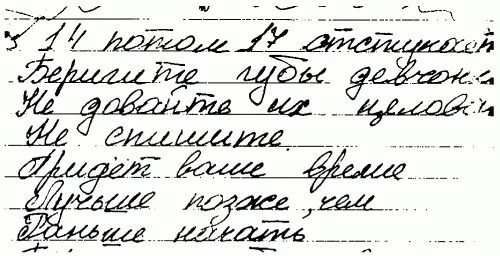 14 потом 17 отстукает
Берегите губы девчонки
Не давайте их целовать
Не спишите
Придёт ваше время
Лучше позже, чем
Раньше начать